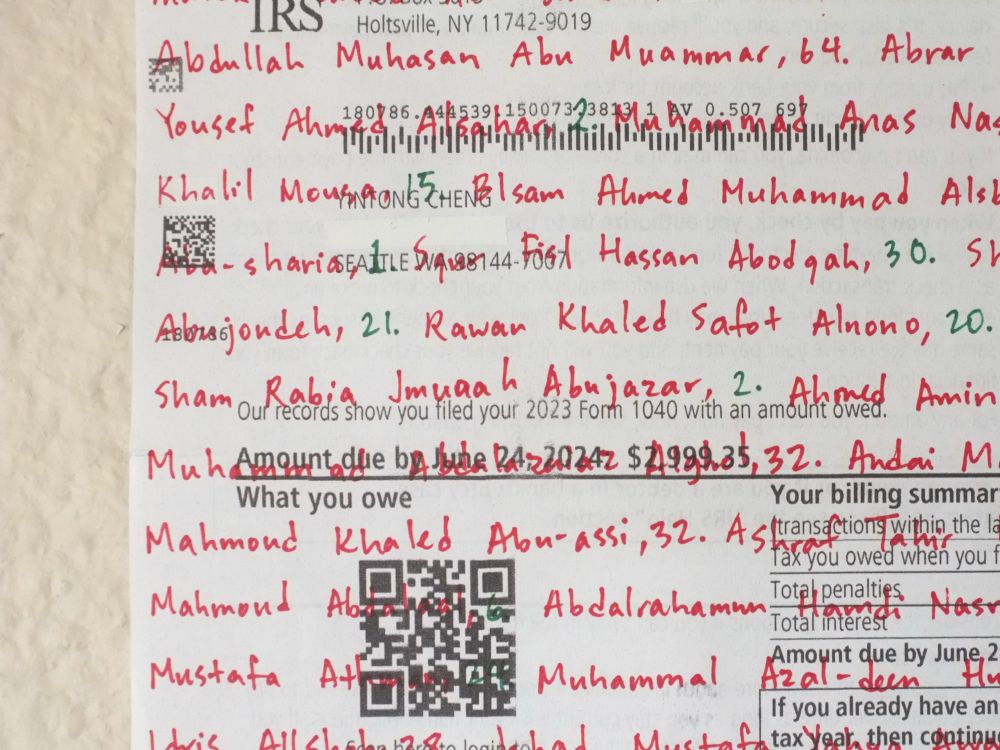 IRS
Holtsville, NY 11742-9019
Abdullah Muhasan Abu Muammar, 64. Abrar
180786. 1 AV 0.507 697
Yousef Ahmed 2 Muhammad Anas Nas
Khalil Mousa, 15. Elsam Ahmed Muhammad Alsb
YINTONG CHENG
Abu-sharia, 1 Hassan Abodqah, 30. Sh
SEATTLE WA 98144-7007
Abujondeh, 21. Rawan Khaled Safot Alnono, 20.
180786
Sham Rabia Jmuaah Abujazar, 2. Ahmed Amin
Our records show you filed your 2023 Form 1040 with an amount owed.
Amount due by June 24, 2024: $2,999.35
Muhammad 32. Andai M
What you owe
Your billing summar
Mahmoud Khaled Abu-assi, 32. Ashraf Tahir
(transactions within the la
Tax you owed when you f
Total penalties
Mahmoud 6 Abdalrahamun Hamdi Nasr
Total interest
Amount due by June 2
Mustafa Muhammal Azal-deen Hu
If you already have an
tax year, then continu
Idris 28. Mustafa
Scan here to login to